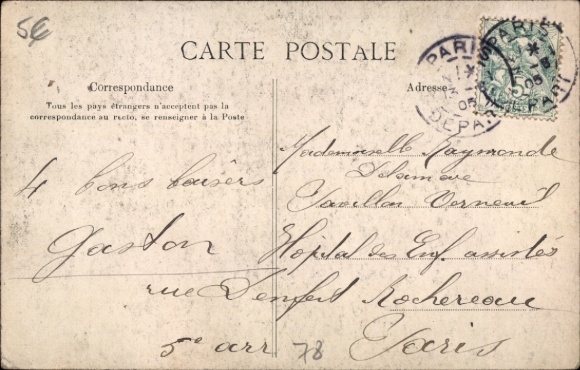 5€
CARTE POSTALE
Correspondance
Tous les pays étrangers n'acceptent pas la
correspondance au recto, se renseigner à la Poste
Adresse
PARIS
DEPART
05
PARIS
DEPART
05
5c
4 bons baisers
Gaston
Mademoiselle Raymonde
Delamare
Pavillon Verneuil
Hôpital des Enf. assistés
rue Denfert Rochereau
5e arr
Paris
78